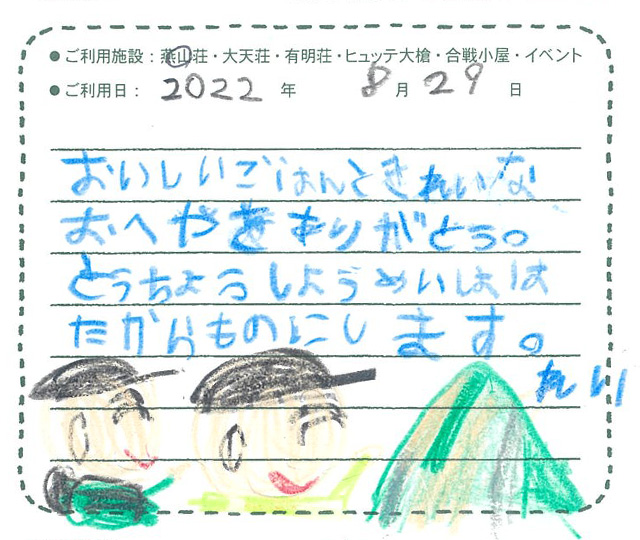 ●ご利用施設：燕山荘・大天荘・有明荘・ヒュッテ大槍・合戦小屋・イベント
●ご利用日： 2022 年 8 月 29 日
おいしいごはんときれいな
おへやをありがとう。
とうちょうしょうめいしょは
たからものにします。
れい